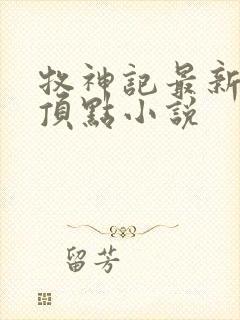 牧神記最新
頂點小說
留芳